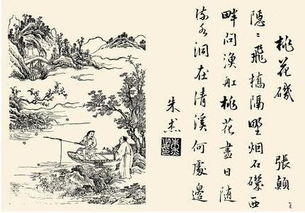 桃花磯 張顛
隱〻飛橋隔野烟石磯西
畔問漁舡桃花盡日隨
流水洞在清溪何處邊
朱杰